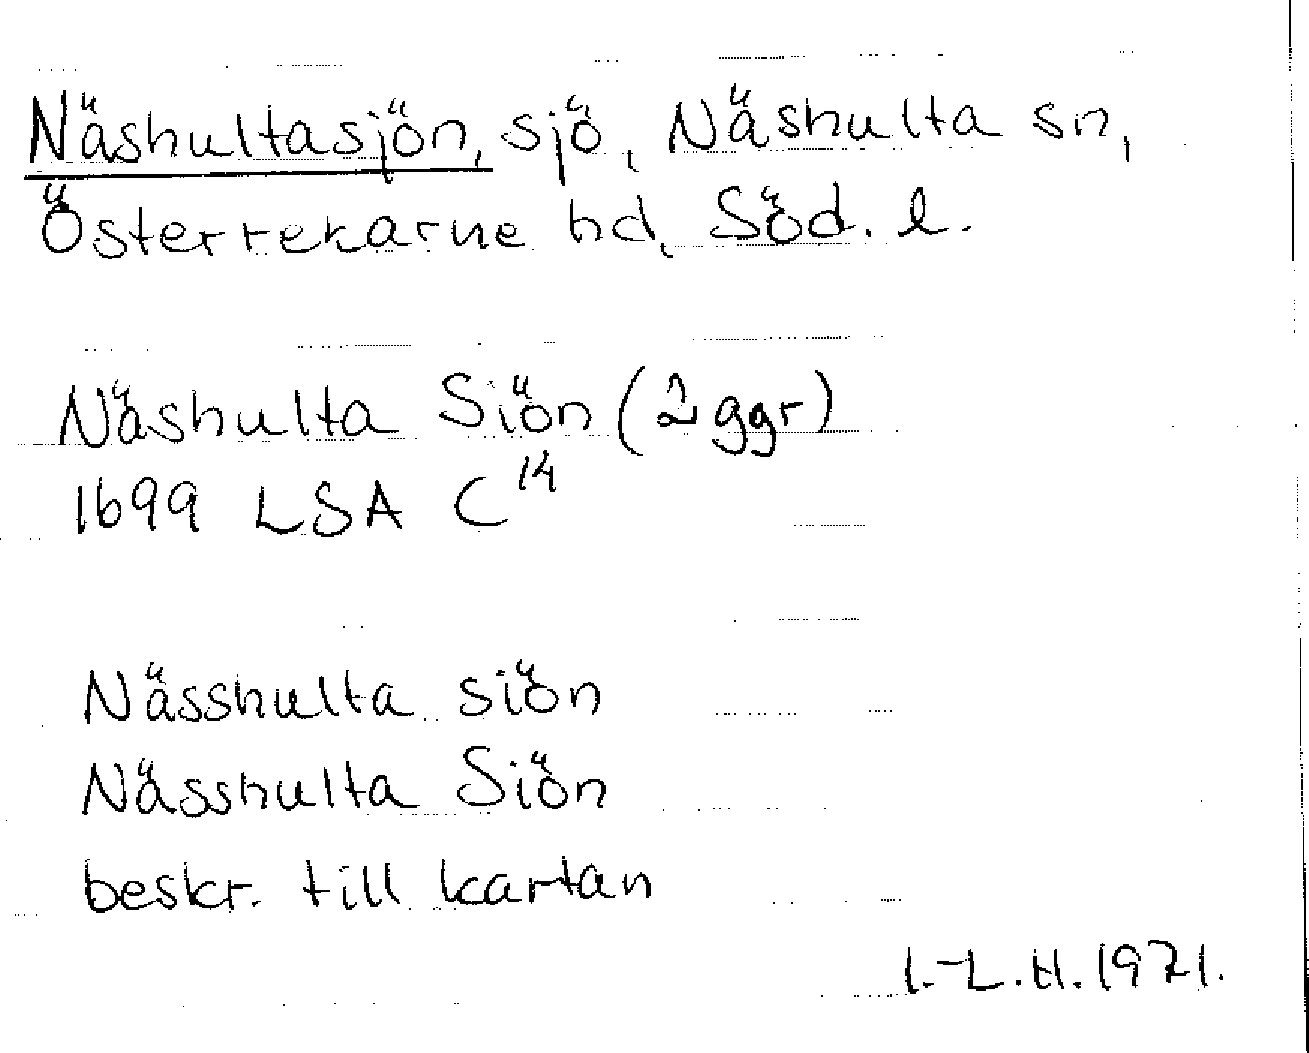 Näshultasjön, sjö, Näshulta sn,
Österrekarne hd, Söd. l.
Näshulta Siön (2 ggr)
1699 LSA C¹⁴
Nässhulta siön
Nässhulta Siön
beskr. till kartan
I.-L.H. 1971.